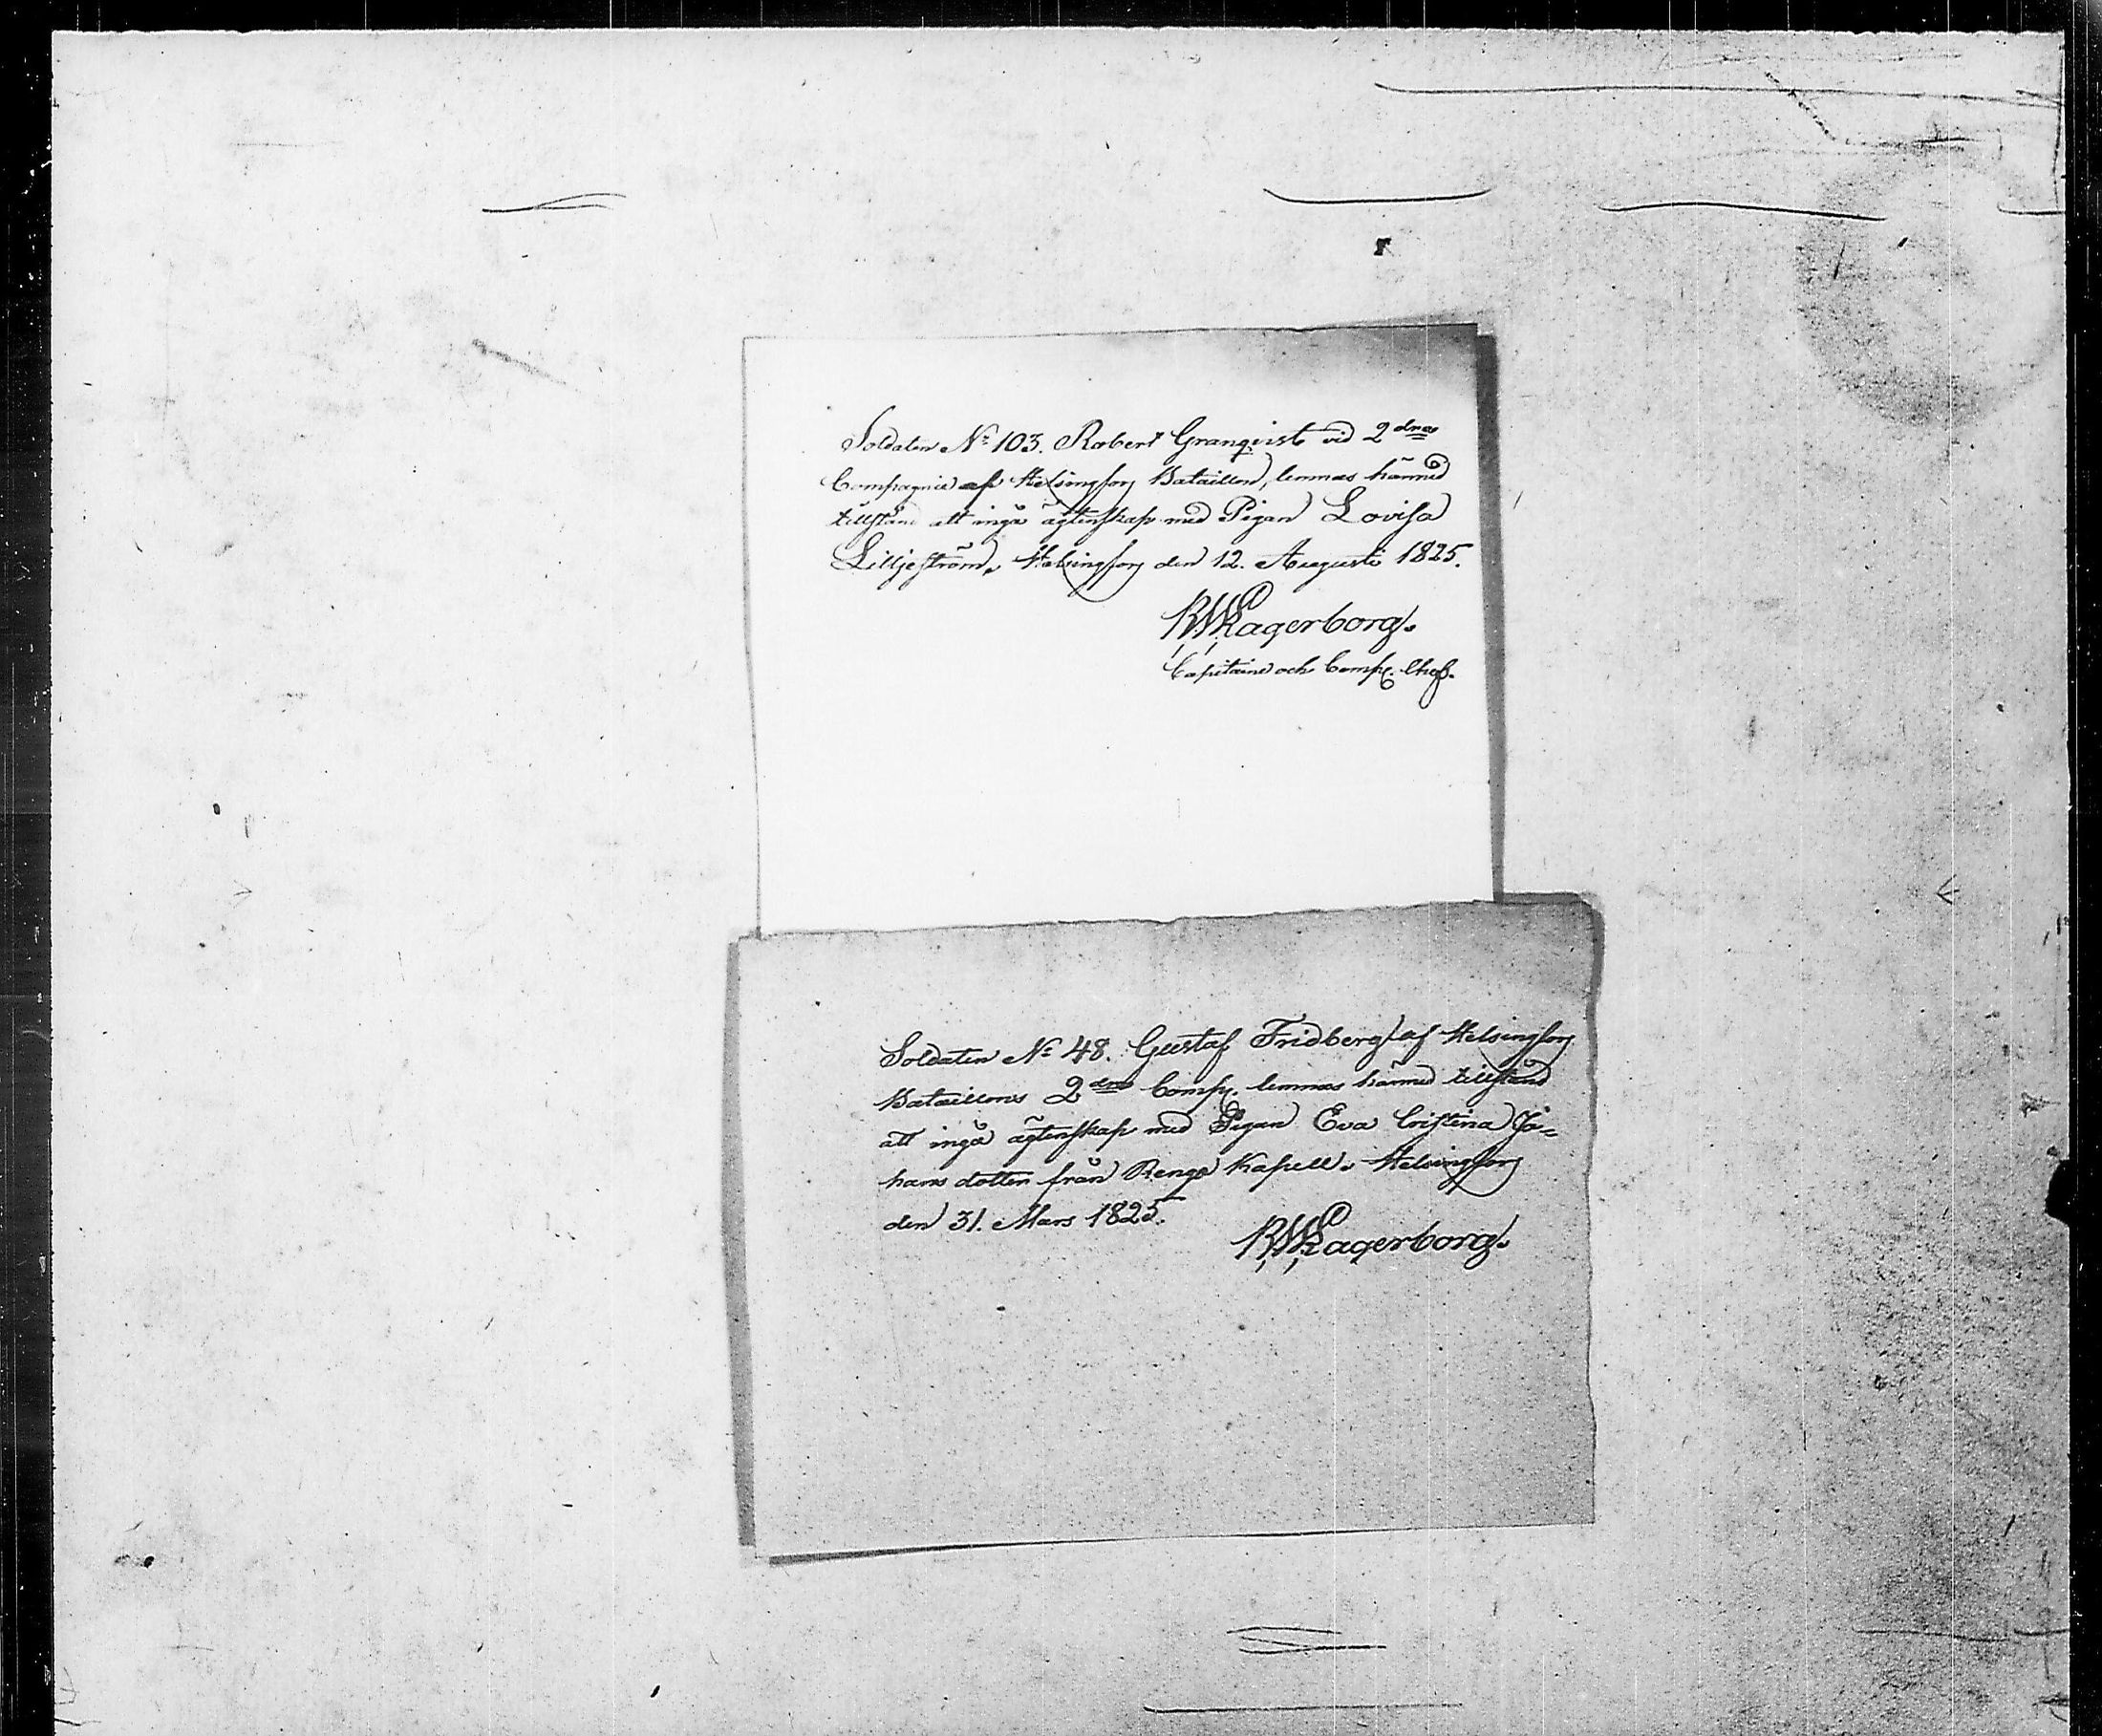 Soldaten No 103. Robert Granqvist vid 2dra
Compagnie af Helsingfors Bataillon, lemnas härmed
tillstånd att ingå ägtenskap med Pigan Lovisa
Lilljeström. Helsingfors den 12. Augusti 1825.
RWLagerborg.
Capitaine och Comp. Chef.
Soldaten No 48. Gustaf Fridberg af Helsingfors
Bataillons 2dra Comp. lemnas härmed tillstånd
att ingå ägtenskap med Pigan Eva Cristina Jo=
hans dotter från Rengo Kapell. Helsingfors
den 31. Mars 1825.
RWLagerborg.